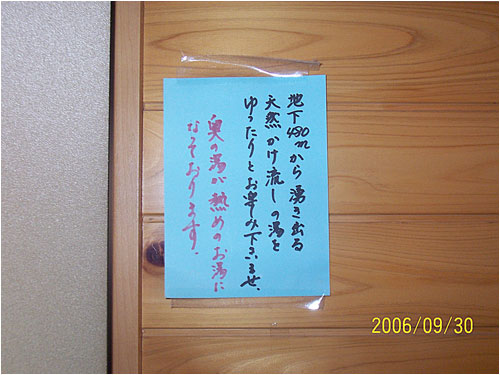 地下480mから湧き出る
天然かけ流しの湯を
ゆったりとお楽しみ下さいませ、
奥の湯が熱めのお湯に
なっております。
2006/09/30